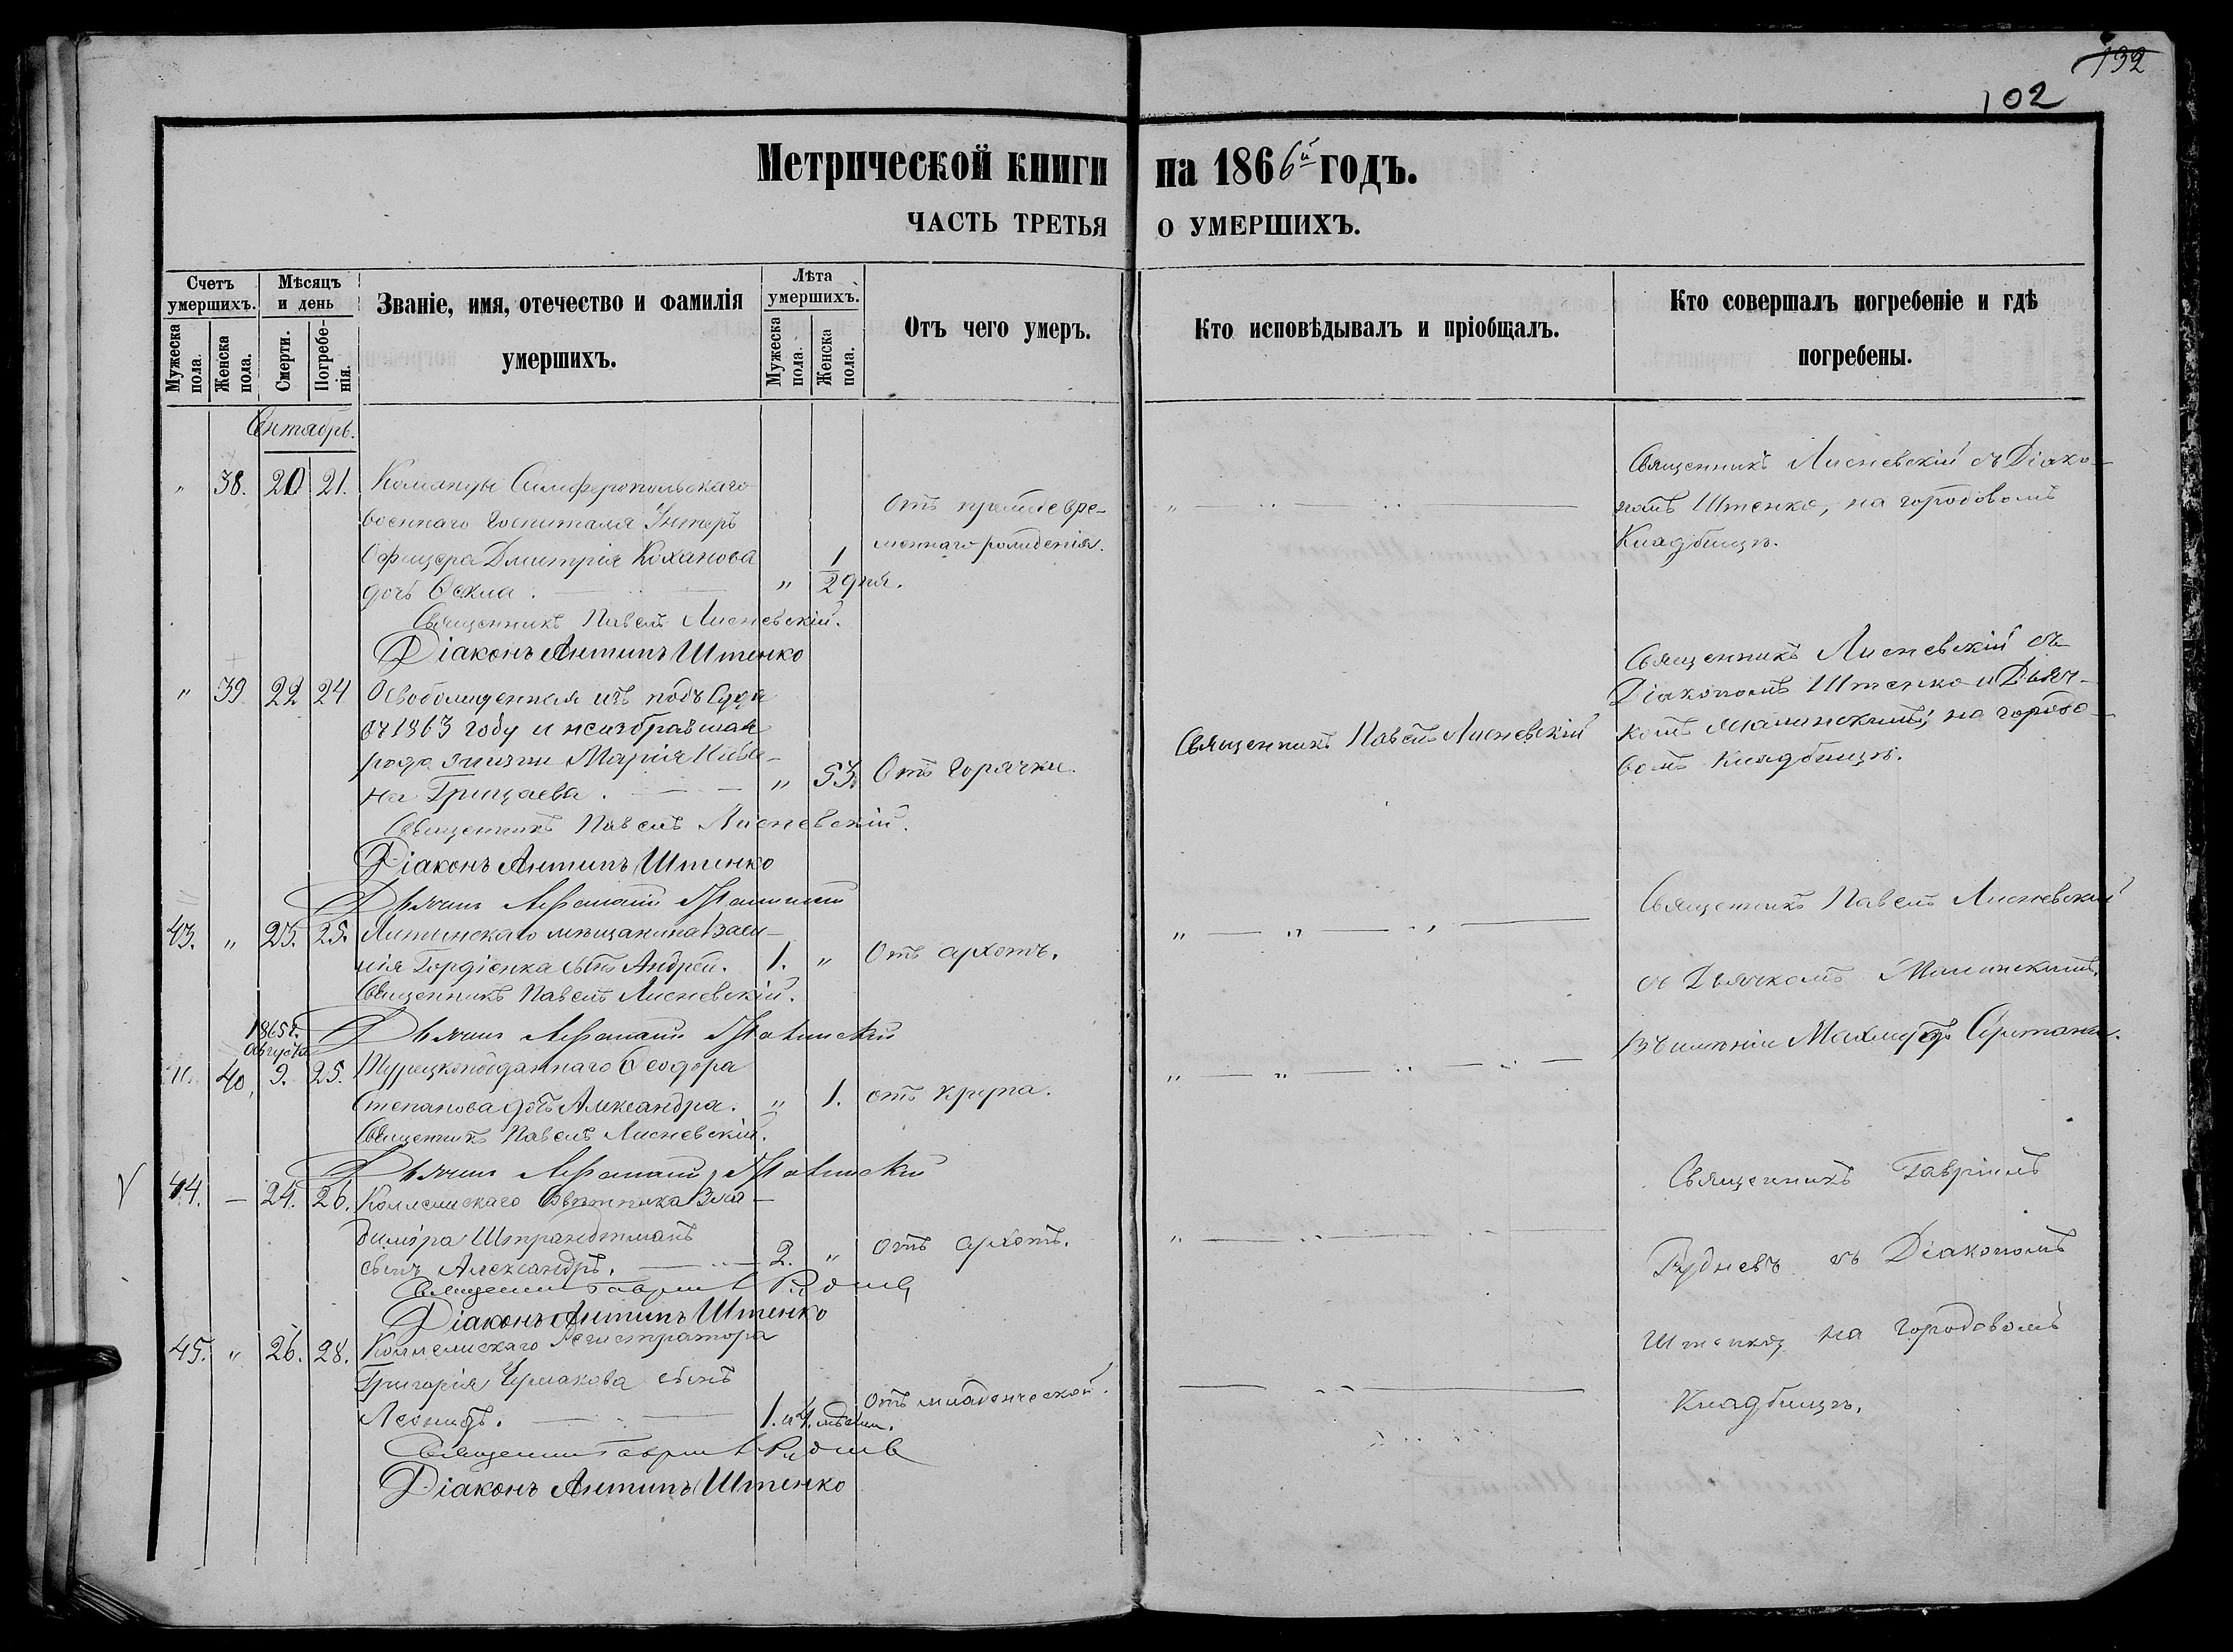 132
102
Метрической книги на 1866й годъ.
ЧАСТЬ ТРЕТЬЯ О УМЕРШИХЪ.
Счетъ умершихъ.
Мужеска пола.
Женска пола.
Мѣсяцъ и день
Смерти.
Погребенія.
Званіе, имя, отечество и фамилія
умершихъ.
Лѣта умершихъ.
Мужеска пола.
Женска пола.
Отъ чего умеръ.
Кто исповѣдывалъ и пріобщалъ.
Кто совершалъ погребеніе и гдѣ
погребены.
Сентябрь.
" 38. 20 21. Команды Симферопольскаго
военнаго Госпиталя Унтеръ
Офицера Дмитрія Коханова
дочь Фекла. " 1/2 дня.
Отъ преждевре-
меннаго рожденія.
Священникъ Лисневскій съ Діако-
номъ Штенко, на городовомъ
Кладбищѣ.
Священникъ Павелъ Лисневскій.
Діаконъ Антипъ Штенко
" 39 22 24 Освобожденная изъ подъ Суда
въ 1863 году и неизбравшая
рода жизни Марія
на Грицаева. " 53. Отъ Горячки.
Священникъ Павелъ Лисневскій
Священникъ Лисневскій съ
Діакономъ Штенко и Дьяч-
комъ Малинскимъ, на городо-
вомъ Кладбищѣ.
Священникъ Павелъ Лисневскій.
Діаконъ Антипъ Штенко
Дьячекъ
43. " 23. 25. мѣщанина Васи-
лія Гордіенка сынъ Андрей. 1. " Отъ сухотъ.
Священникъ Павелъ Лисневскій
съ Дьячкомъ Малинскимъ,
Священникъ Павелъ Лисневскій.
Дьячекъ
1865 г.
Августа
" 40. 9. 25. Турецкоподданнаго Феодора
Степанова дочь Александра. " 1. отъ крупа.
въ имѣніи
Священникъ Павелъ Лисневскій.
Дьячекъ
V 44. — 24. 26. Коллежскаго Совѣтника Вла-
диміра Штрандтманъ
сынъ Александръ. 2. " Отъ сухотъ.
Священникъ Гавріилъ
Рудневъ съ Діакономъ
Штенко, на городовомъ
Кладбищѣ.
Священникъ Гавріилъ Рудневъ
Діаконъ Антипъ Штенко
45. " 26. 28. Коллежскаго Регистратора
Григорія Чумакова сынъ
Леонидъ. 1. и 4. мѣсяц.
Отъ младенческой.
Священникъ Гавріилъ Рудневъ
Діаконъ Антипъ Штенко